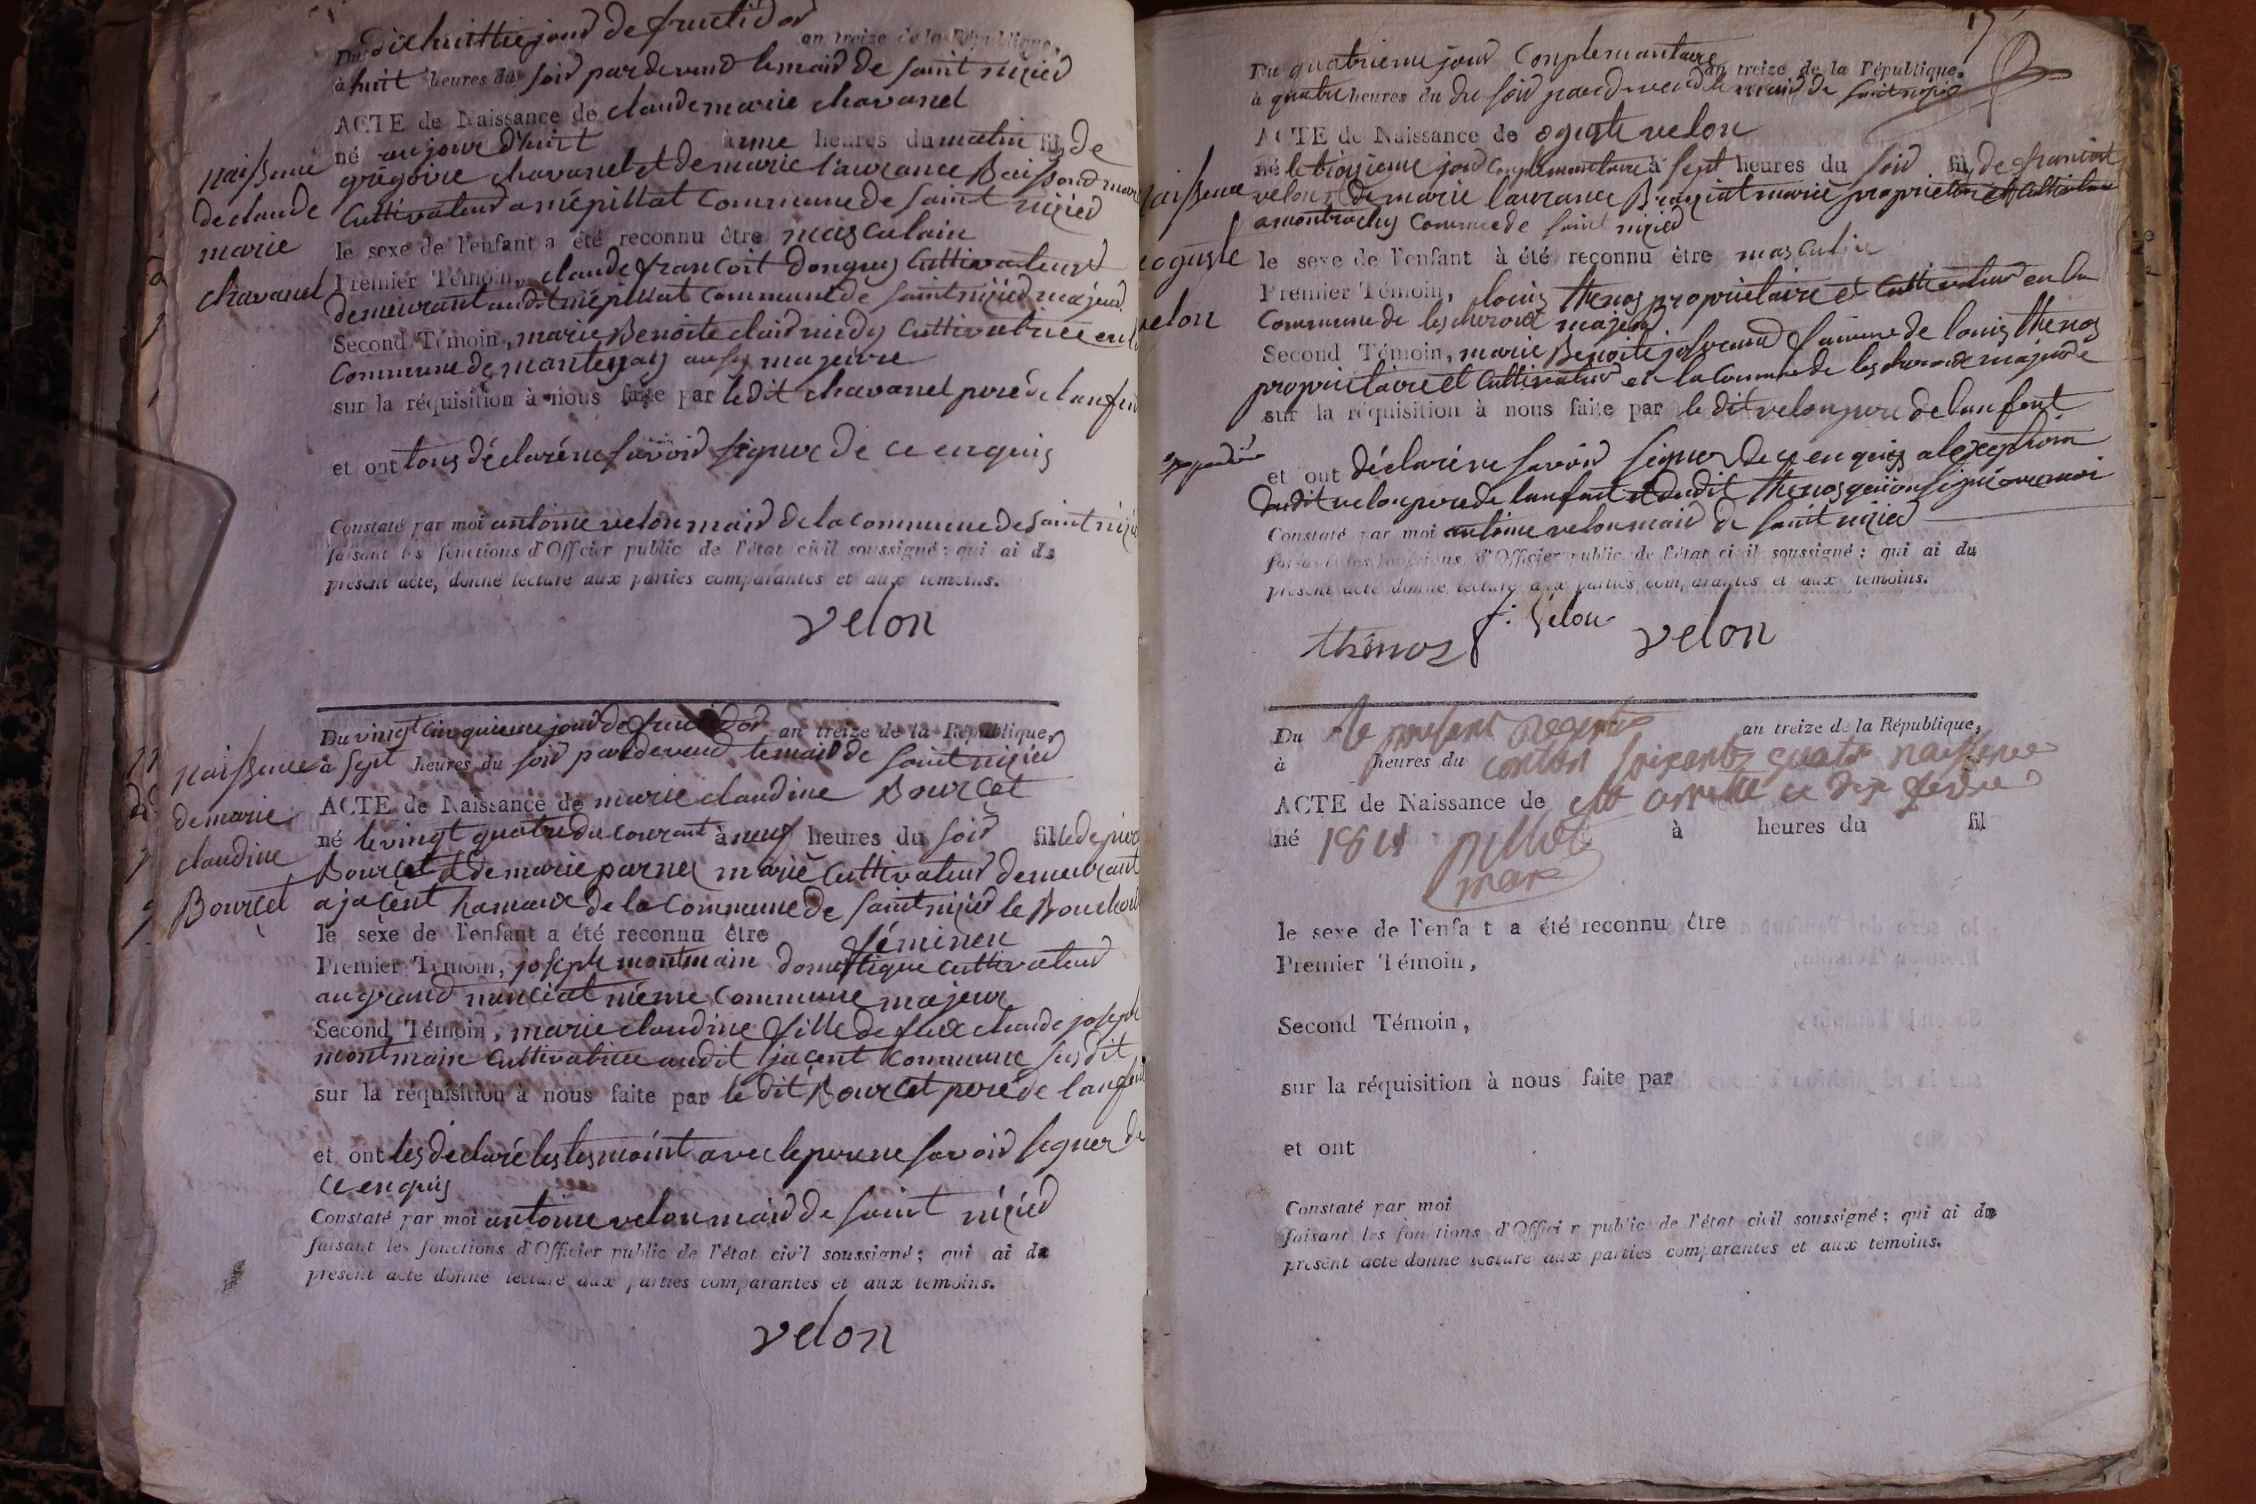 Du dix huittie jour de fructidor an treize de la République,
à huit heures du soir pardevend le maid de saint nizied
ACTE de Naissance de claude marie chavanel
né aujour d'huit à une heures du matin fils de
grégoire chavanel et de marie laurance Buisson mar
Cultivateur a mépillat Commune de saint nizied
le sexe de l'enfant a été reconnu être masculain
Premier Témoin, claude francoit donguy Cultivateur
demeurant audit mépillat Commune de saint nizied majeur
Second Témoin, marie Benoite Cultivatrice en la
Commune de mantenay aussy majeure
sur la réquisition à nous faite par ledit chavanel peré de lanfen
et ont tous déclaré ne savoir signer de ce enquis
Constaté par moi antoine velon maid de la commune de saint nizie
faisant les fonctions d'Officier public de l'état civil soussigné; qui ai du
présent acte, donné lecture aux parties comparantes et aux témoins.
velon
naissance
de claude
marie
chavanel
Du vingt cinquieme jour de fructidor an treize de la République,
à sept heures du soir pardevend le maid de saint nizied
ACTE de Naissance de marie claudine Bourcet
né le vingt quatre du courant à neuf heures du soir fille de pier
Bourcet et de marie parnex marié Cultivateur demeurant
a jacent hamaux de la Commune de saint nizied le Bouchou
le sexe de l'enfant a été reconnu être féminen
Premier Témoin, joseph montmain domestique cultivateur
au grand même commune majeur
Second Témoin, marie claudine fille de feux claude joseph
montmain Cultivatrice audit jacent Commune susdit
sur la réquisition à nous faite par le dit Bourcet peré de lanfen
et ont les declaré les tesmoint avec le pere ne savoir segner de
ce enquis
Constaté par moi antoine velon maid de saint nizied
faisant les fonctions d'Officier public de l'état civil soussigné; qui ai du
présent acte donné lecture aux parties comparantes et aux témoins.
velon
naissance
de marie
claudine
Bourcet
Du quatrieme jour Complemantaire an treize de la République,
à quatre heures du du soir pardevend le maid de saint nizied
ACTE de Naissance de oguste velon
né le troizieme jour Complemantaire à sept heures du soir fils de francoit
velon et de marie laurance marié proprietere et Cultivateur
a montrachy Commune de saint nizied
le sexe de l'enfant à été reconnu être masculin
Premier Témoin, louis thenoz proprietaire et Cultivateur en la
Commune de majeur
Second Témoin, marie Benoite famme de louis thenoz
proprietaire et Cultivateur en la Commune de majeure
sur la réquisition à nous faite par le dit velon pere de lanfent
et ont déclaré ne savoir signer de ce enquis a lexeption
dudit velon pere de lanfant et dudit thenoz qui on signé avec moi
Constaté par moi antoine velon maid de saint nizied
faisant les fonctions d'Officier public de l'état civil soussigné; qui ai du
présent acte donné lecture aux parties comparantes et aux témoins.
thénoz f. Vélon velon
naissance
oguste
velon
Du le présent registre an treize de la République,
à heures du conten soixante quatre naissences
ACTE de Naissance de est arretté ce dix fevrie
né 1811 à heures du fil
maire
le sexe de l'enfant a été reconnu être
Premier Témoin,
Second Témoin,
sur la réquisition à nous faite par
et ont
Constaté par moi
faisant les fonctions d'Officier public de l'état civil soussigné; qui ai du
présent acte donné lecture aux parties comparantes et aux témoins.